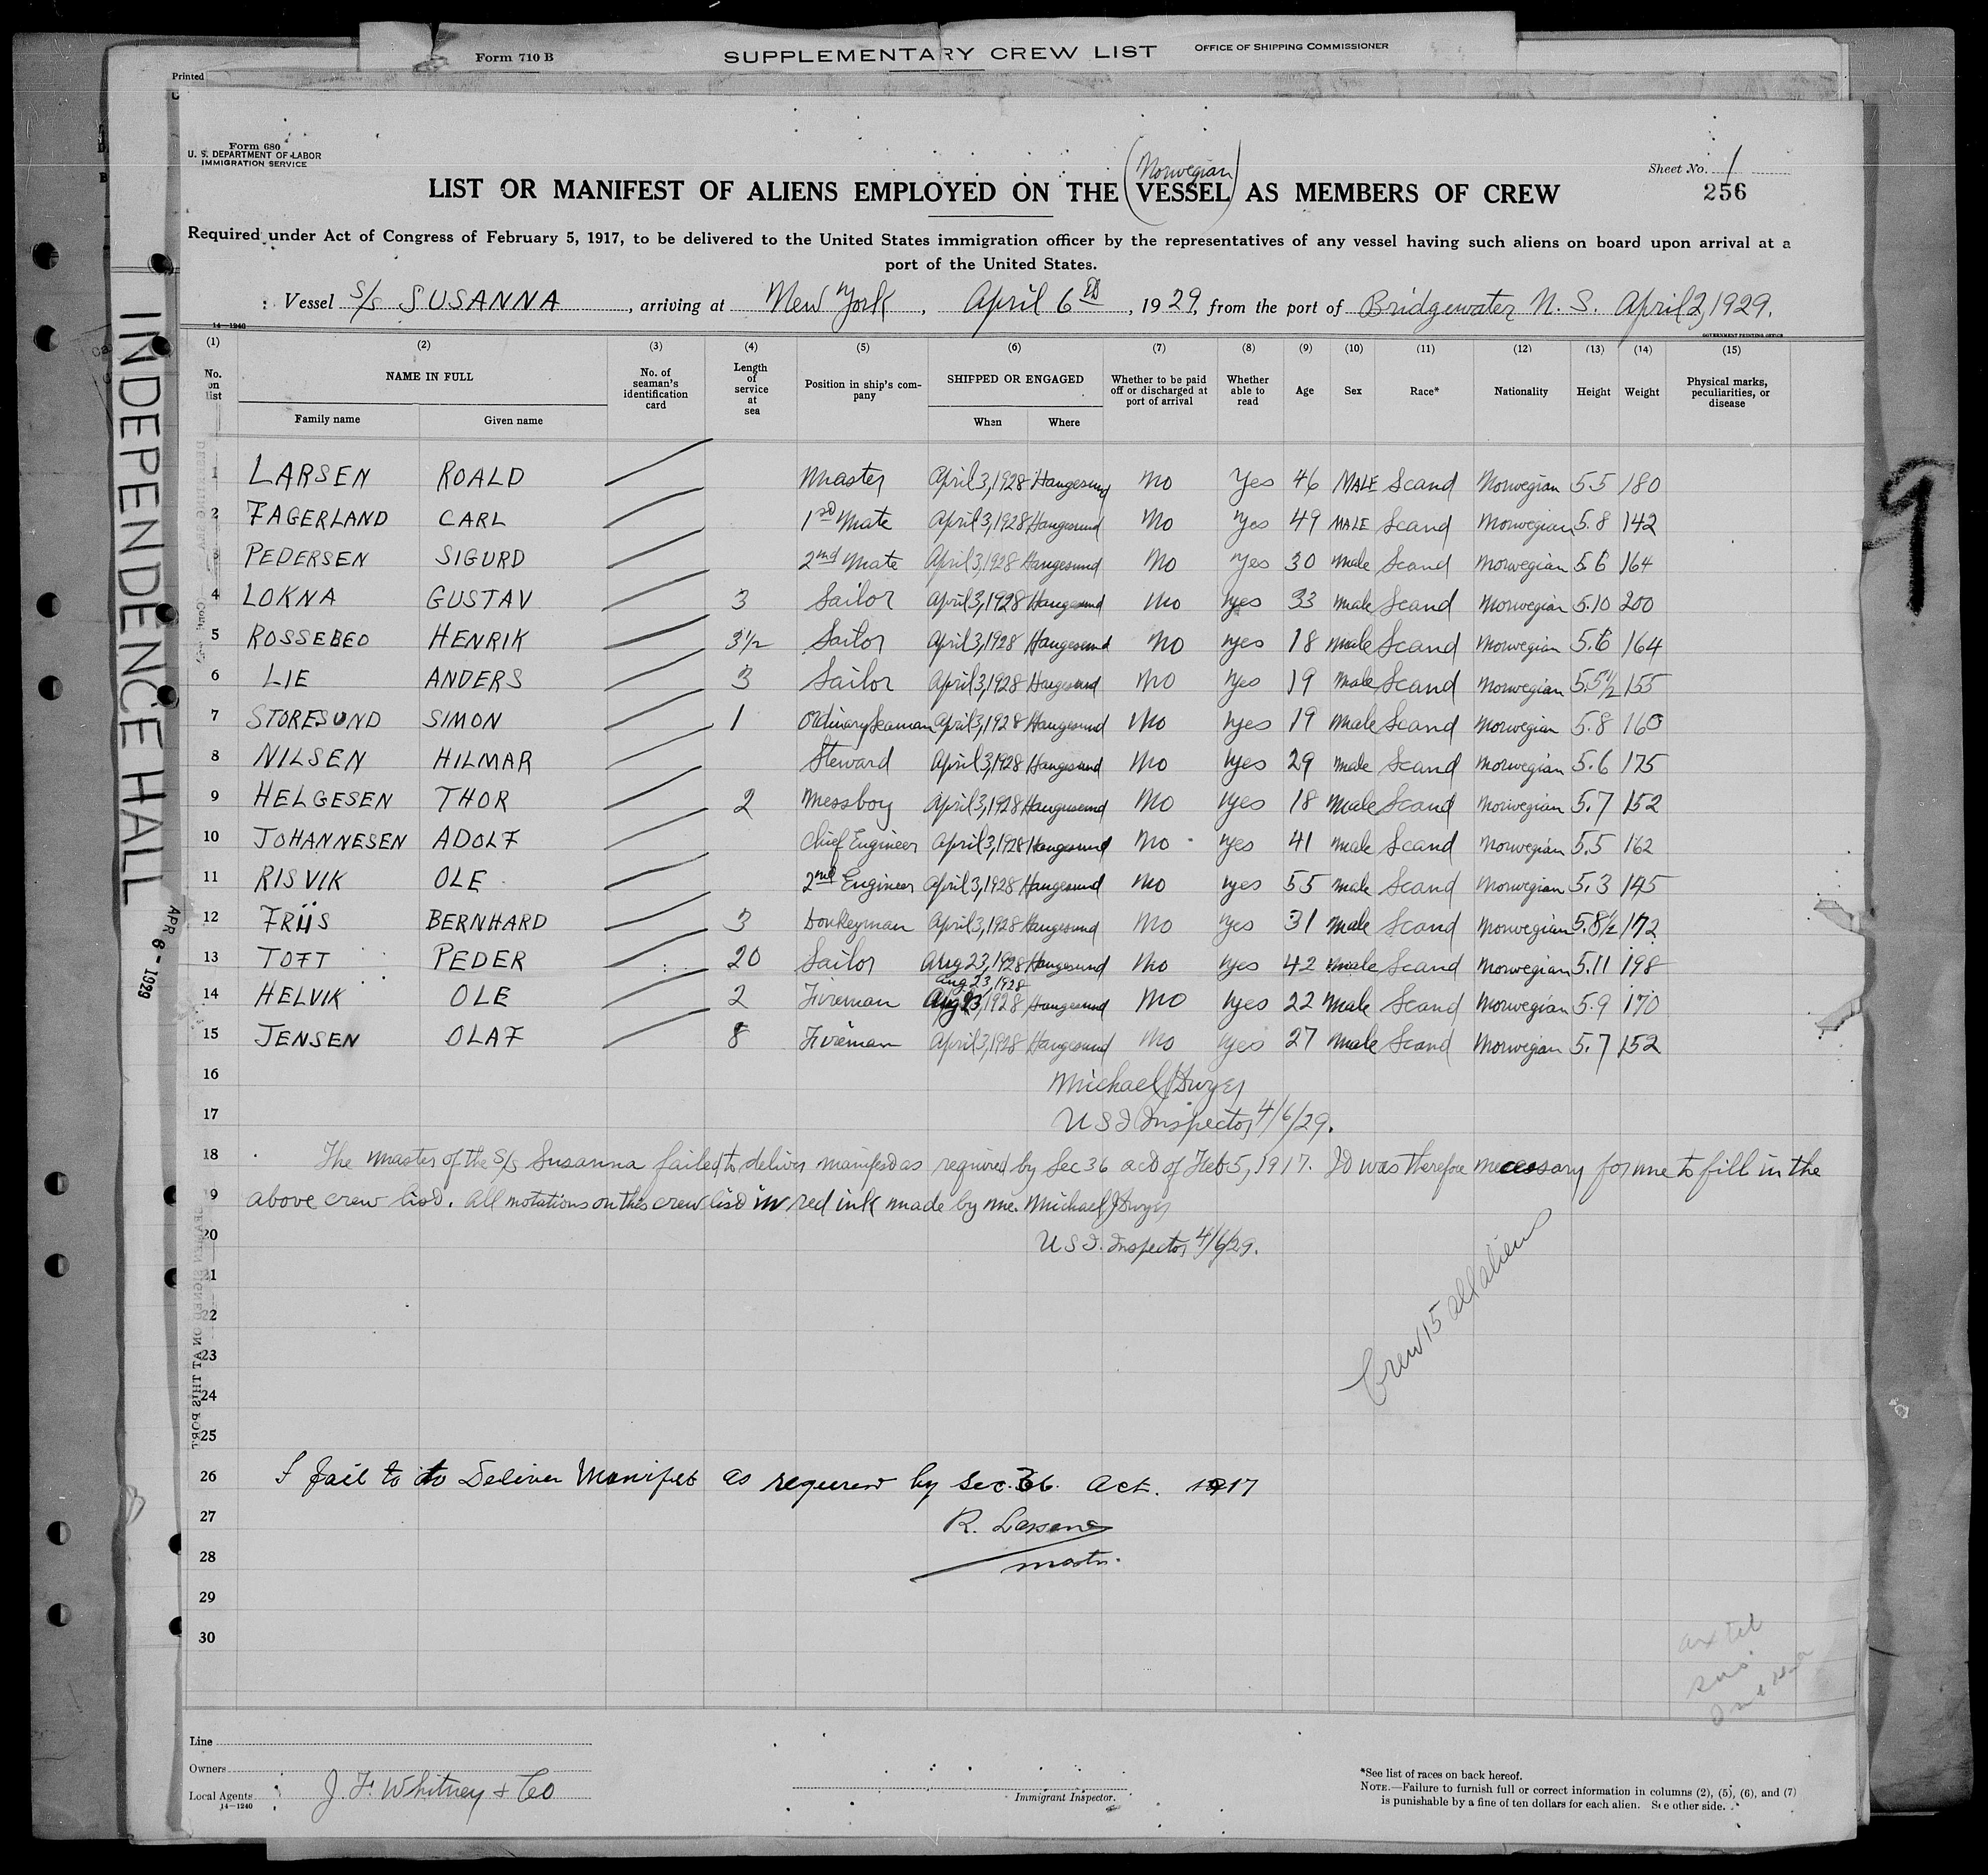 Form 710 B SUPPLEMENTARY CREW LIST OFFICE OF SHIPPING COMMISSIONER
Printed
Form 680
U. S. DEPARTMENT OF LABOR
IMMIGRATION SERVICE
Sheet No. 1
256
Norwegian
LIST OR MANIFEST OF ALIENS EMPLOYED ON THE (VESSEL) AS MEMBERS OF CREW
Required under Act of Congress of February 5, 1917, to be delivered to the United States immigration officer by the representatives of any vessel having such aliens on board upon arrival at a
port of the United States.
Vessel S/S SUSANNA, arriving at New York, April 6th, 1929, from the port of Bridgewater N. S. April 2, 1929.
14—1240 GOVERNMENT PRINTING OFFICE
(1) (2) (3) (4) (5) (6) (7) (8) (9) (10) (11) (12) (13) (14) (15)
No. on list NAME IN FULL No. of seaman's identification card Length of service at sea Position in ship's company SHIPPED OR ENGAGED Whether to be paid off or discharged at port of arrival Whether able to read Age Sex Race* Nationality Height Weight Physical marks, peculiarities, or disease
Family name Given name When Where
1 LARSEN ROALD Master April 3, 1928 Haugesund No Yes 46 MALE Scand Norwegian 5.5 180
2 FAGERLAND CARL 1st Mate April 3, 1928 Haugesund No Yes 49 MALE Scand Norwegian 5.8 142
3 PEDERSEN SIGURD 2nd Mate April 3, 1928 Haugesund No Yes 30 Male Scand Norwegian 5.6 164
4 LOKNA GUSTAV 3 Sailor April 3, 1928 Haugesund No Yes 33 Male Scand Norwegian 5.10 200
5 ROSSEBEO HENRIK 3 1/2 Sailor April 3, 1928 Haugesund No Yes 18 Male Scand Norwegian 5.6 164
6 LIE ANDERS 3 Sailor April 3, 1928 Haugesund No Yes 19 Male Scand Norwegian 5.5 1/2 155
7 STORESUND SIMON 1 Ordinary Seaman April 3, 1928 Haugesund No Yes 19 Male Scand Norwegian 5.8 160
8 NILSEN HILMAR Steward April 3, 1928 Haugesund No Yes 29 Male Scand Norwegian 5.6 175
9 HELGESEN THOR 2 Messboy April 3, 1928 Haugesund No Yes 18 Male Scand Norwegian 5.7 152
10 JOHANNESEN ADOLF Chief Engineer April 3, 1928 Haugesund No Yes 41 Male Scand Norwegian 5.5 162
11 RISVIK OLE 2nd Engineer April 3, 1928 Haugesund No Yes 55 Male Scand Norwegian 5.3 145
12 FRIIS BERNHARD 3 Donkeyman April 3, 1928 Haugesund No Yes 31 Male Scand Norwegian 5.8 1/2 172
13 TOFT PEDER 20 Sailor Aug 23, 1928 Haugesund No Yes 42 Male Scand Norwegian 5.11 198
Aug 23, 1928
14 HELVIK OLE 2 Fireman Aug 23, 1928 Haugesund No Yes 22 Male Scand Norwegian 5.9 170
15 JENSEN OLAF 8 Fireman April 3, 1928 Haugesund No Yes 27 Male Scand Norwegian 5.7 152
16 Michael J Dwyer
17 U S I Inspector 4/6/29.
18 The master of the S/S Susanna failed to deliver manifest as required by Sec 36 act of Feb 5, 1917. It was therefore necessary for me to fill in the
19 above crew list. All notations on this crew list in red ink made by me. Michael J Dwyer
20 U S I. Inspector 4/6/29.
21
22
23
24
Crew 15 all alien
25
26 I fail to to Deliver Manifest as required by Sec. 36. Act. 1917
27 R. Larsen
28 Master.
29
30
Line
Owners
Local Agents J. F. Whitney & Co
14—1240
Immigrant Inspector.
*See list of races on back hereof.
NOTE.—Failure to furnish full or correct information in columns (2), (5), (6), and (7)
is punishable by a fine of ten dollars for each alien. See other side.
INDEPENDENCE HALL
APR 6 - 1929
9